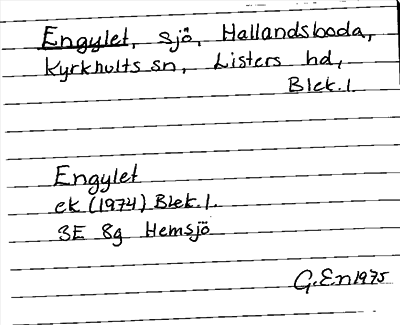 Engylet, sjö, Hallandsboda,
Kyrkhults sn, Listers hd,
Blek. l.
Engylet
ek (1974) Blek. l.
3E 8g Hemsjö
G. En 1975